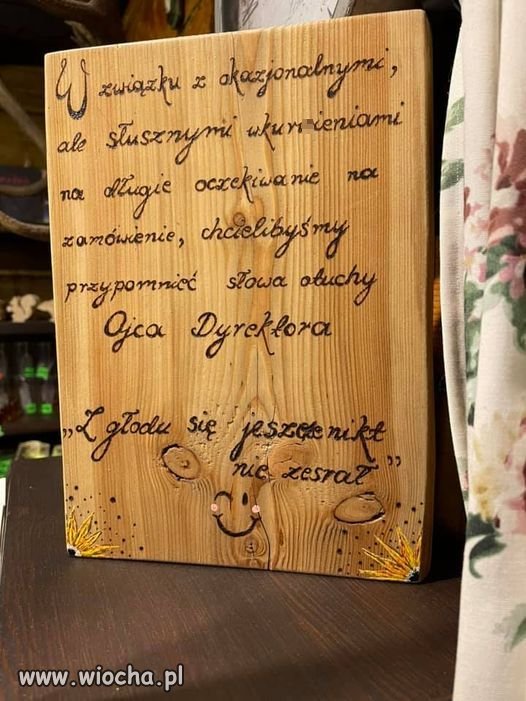 W związku z okazjonalnymi,
ale słusznymi wkur ieniami
na długie oczekiwanie na
zamówienie, chcielibyśmy
przypomnieć słowa otuchy
Ojca Dyrektora
„Z głodu się jeszcze nikt
nie zesrał”
www.wiocha.pl